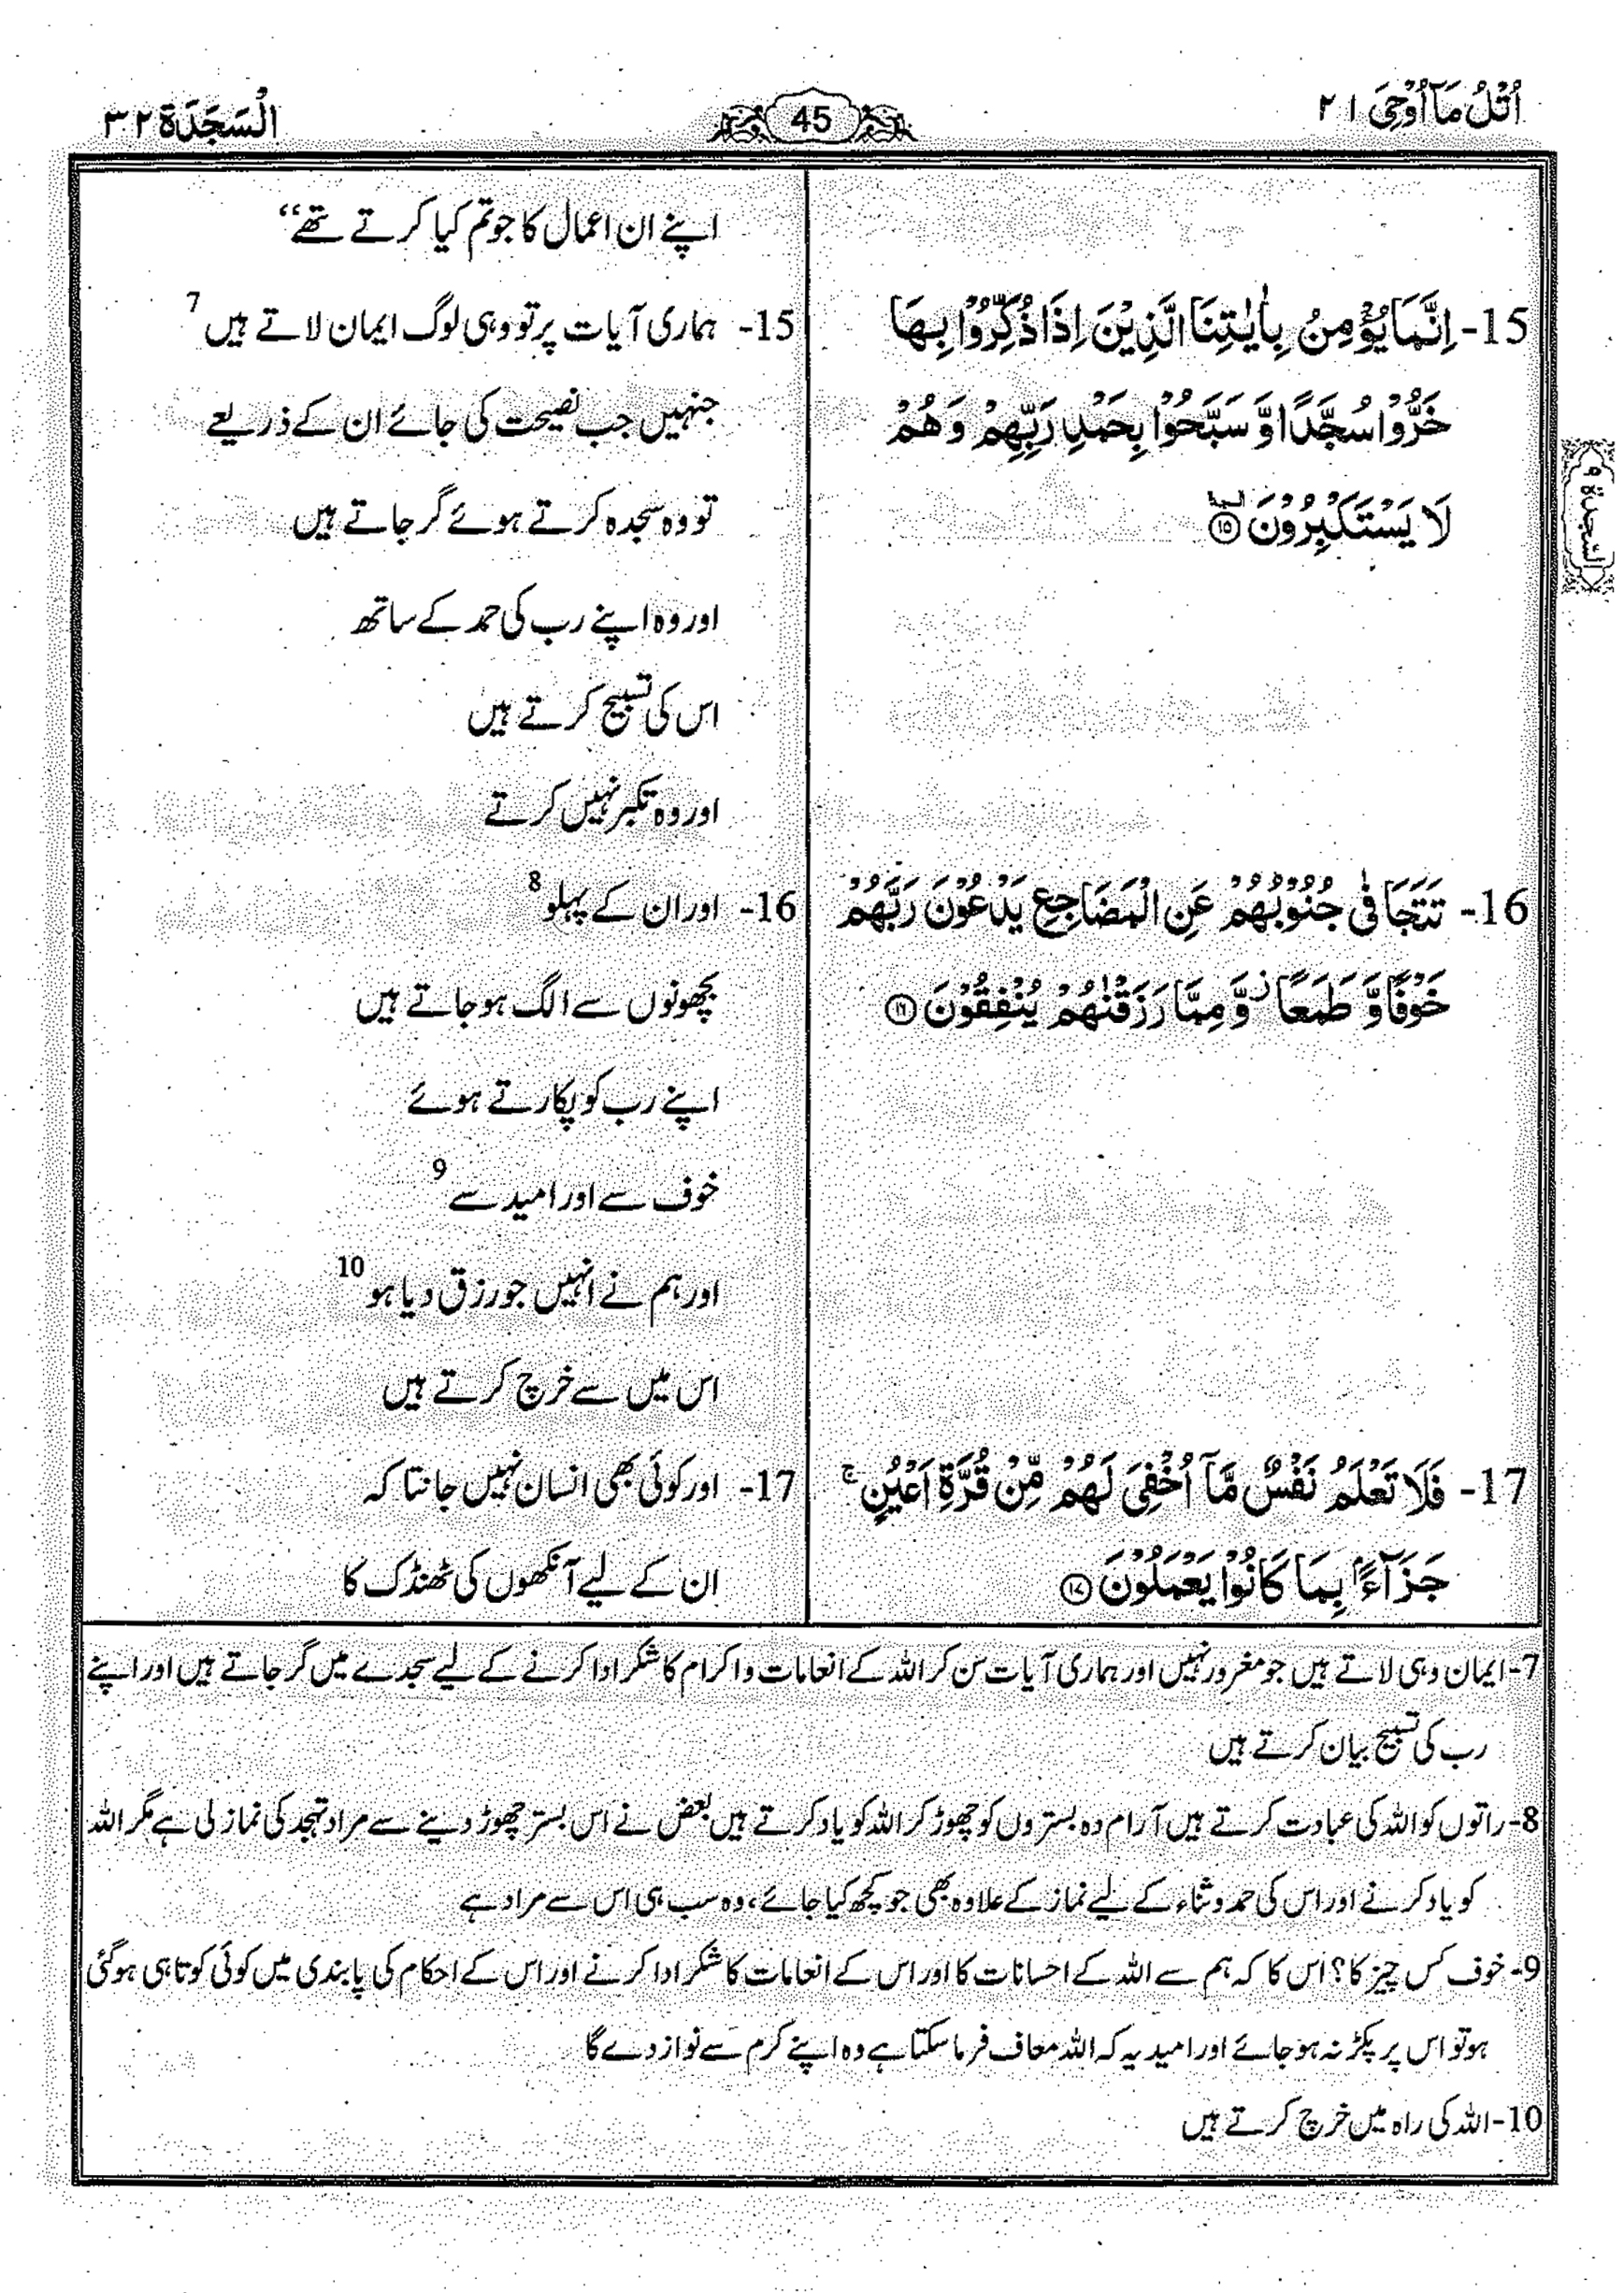 اُتْلُ مَآ اُوْحِیَ ۲۱
45
اَلسَّجْدَة ۳۲
15- اِنَّمَا يُؤْمِنُ بِاٰيٰتِنَا الَّذِيْنَ اِذَا ذُكِّرُوْا بِهَا
خَرُّوْا سُجَّدًا وَّ سَبَّحُوْا بِحَمْدِ رَبِّهِمْ وَ هُمْ
لَا يَسْتَكْبِرُوْنَ ۩ ⑮
السجدة ۹
16- تَتَجَافٰى جُنُوْبُهُمْ عَنِ الْمَضَاجِعِ يَدْعُوْنَ رَبَّهُمْ
خَوْفًا وَّ طَمَعًا ؗ وَّ مِمَّا رَزَقْنٰهُمْ يُنْفِقُوْنَ ⑯
17- فَلَا تَعْلَمُ نَفْسٌ مَّاۤ اُخْفِيَ لَهُمْ مِّنْ قُرَّةِ اَعْيُنٍ ۚ
جَزَآءًۢ بِمَا كَانُوْا يَعْمَلُوْنَ ⑰
اپنے ان اعمال کا جو تم کیا کرتے تھے‘‘
15- ہماری آیات پر تو وہی لوگ ایمان لاتے ہیں 7
جنہیں جب نصیحت کی جائے ان کے ذریعے
تو وہ سجدہ کرتے ہوئے گر جاتے ہیں
اور وہ اپنے رب کی حمد کے ساتھ
اس کی تسبیح کرتے ہیں
اور وہ تکبر نہیں کرتے
16- اور ان کے پہلو 8
بچھونوں سے الگ ہو جاتے ہیں
اپنے رب کو پکارتے ہوئے
خوف سے اور امید سے 9
اور ہم نے انہیں جو رزق دیا ہو 10
اس میں سے خرچ کرتے ہیں
17- اور کوئی بھی انسان نہیں جانتا کہ
ان کے لیے آنکھوں کی ٹھنڈک کا
7- ایمان وہی لاتے ہیں جو مغرور نہیں اور ہماری آیات سن کر اللہ کے انعامات و اکرام کا شکر ادا کرنے کے لیے سجدے میں گر جاتے ہیں اور اپنے
رب کی تسبیح بیان کرتے ہیں
8- راتوں کو اللہ کی عبادت کرتے ہیں آرام دہ بستروں کو چھوڑ کر اللہ کو یاد کرتے ہیں بعض نے اس بستر چھوڑ دینے سے مراد تہجد کی نماز لی ہے مگر اللہ
کو یاد کرنے اور اس کی حمد و ثناء کے لیے نماز کے علاوہ بھی جو کچھ کیا جائے، وہ سب ہی اس سے مراد ہے
9- خوف کس چیز کا؟ اس کا کہ ہم سے اللہ کے احسانات کا اور اس کے انعامات کا شکر ادا کرنے اور اس کے احکام کی پابندی میں کوئی کوتاہی ہو گئی
ہو تو اس پر پکڑ نہ ہو جائے اور امید یہ کہ اللہ معاف فرما سکتا ہے وہ اپنے کرم سے نواز دے گا
10- اللہ کی راہ میں خرچ کرتے ہیں